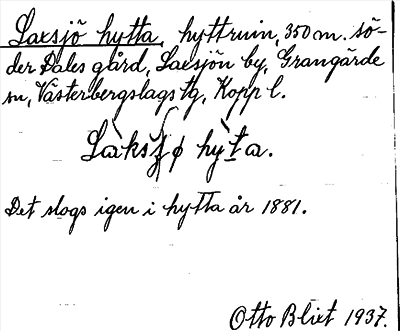 Laxsjö hytta, hyttruin, 350 m. sö-
der Dales gård, Laxsjön by, Grangärde
sn, Västerbergslags tg, Kopp l.
hỳta.
Det slogs igen i hytta år 1881.
Otto Blixt 1937.